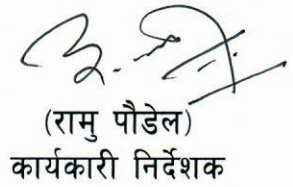 (रामु पौडेल)
कार्यकारी निर्देशक